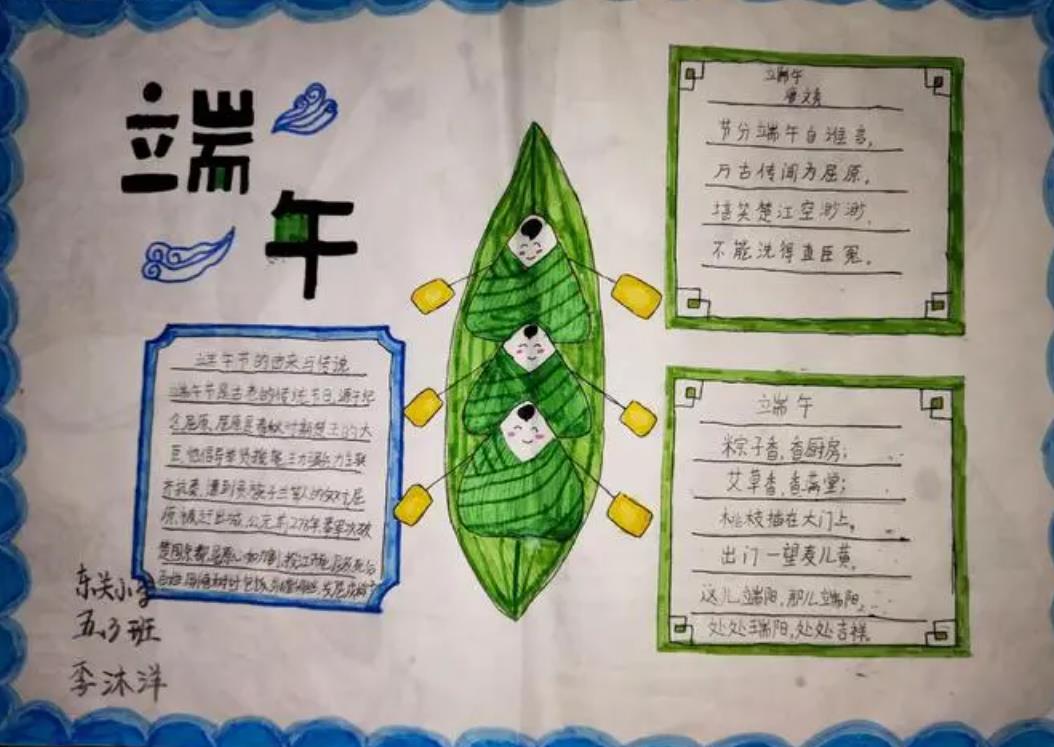 端午
端午
唐文秀
节分端午自谁言,
万古传闻为屈原。
搞笑楚江空渺渺,
不能洗得直臣冤。
端午节的由来与传说
端午节是古老的传统节日,源于纪
念屈原,屈原是春秋时期楚王的大
臣,他倡导举贤授能,力主联
齐抗秦,遭到贵族子兰等人的反对,屈
原被赶出城,公元前278年,秦军攻破
楚国京都,屈原心如刀割,投江而死
端午
粽子香,香厨房;
艾草香,香满堂;
桃枝插在大门上,
出门一望麦儿黄,
这儿端阳,那儿端阳,
处处端阳,处处吉祥。
东关小学
五、3班
李沐洋